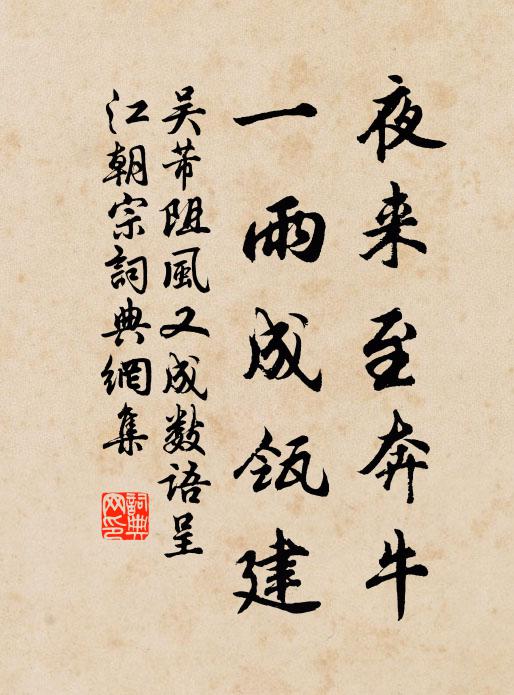 夜来至奔牛
一雨成瓴建
吴芾阻風又成数語呈
江朝宗詞典網集
詞典
网印